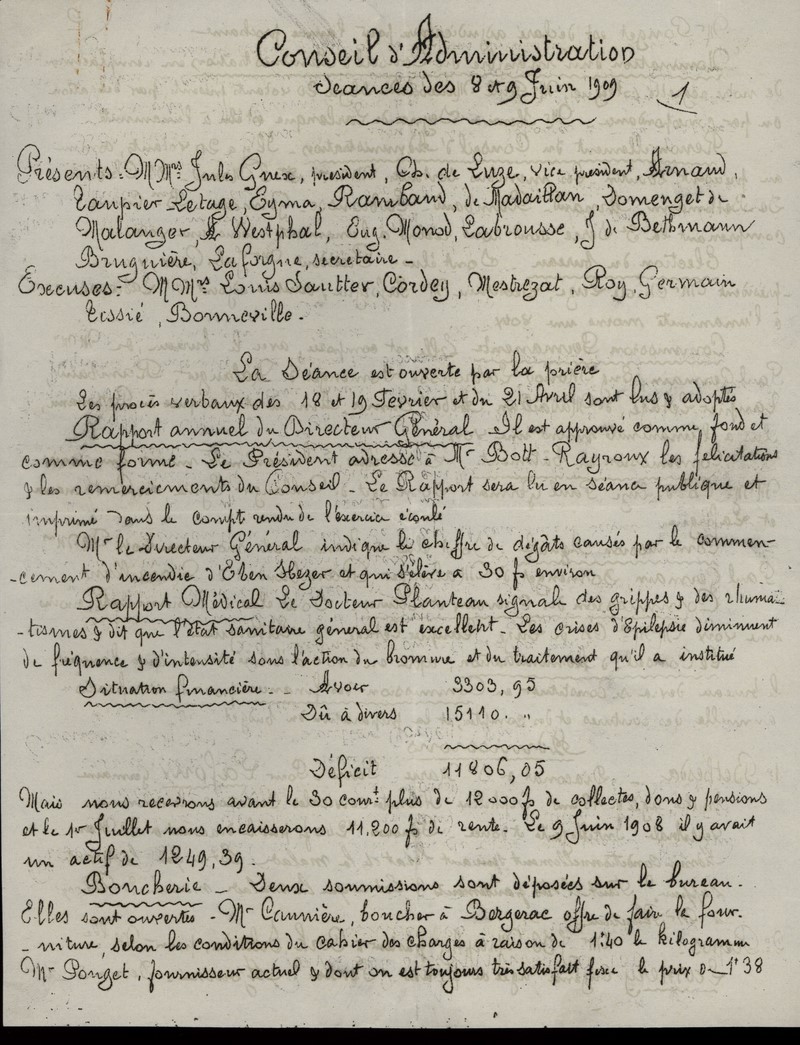 Conseil d'Administration
Séances des 8 et 9 Juin 1909
1
Présents: M Mrs Jules Guex, président, Ch. de Luze, vice président, Arnaud,
Taupier Letage, Eyma, Rambaud, de Madaillan, Domenget de
Malanger, A Westphal, Eug. Monod, Labrousse, J de Bethmann
Bruguière, Laforgue, secrétaire -
Excusés: M Mrs Louis Sautter, Cordey, Mestrezat, Roy, Germain
Tessié, Bonneville.
La Séance est ouverte par la prière
Les procès verbaux des 18 et 19 Février et du 21 Avril sont lus & adoptés
Rapport annuel du Directeur Général Il est approuvé comme fond et
comme forme - Le Président adresse à Mr Bott-Rayroux les félicitations
& les remerciements du Conseil - Le Rapport sera lu en séance publique et
imprimé dans le compte rendu de l'exercice écoulé
Mr le Directeur Général indique le chiffre de dégâts causés par le commen-
-cement d'incendie d'Eben Hezer et qui s'élève à 30 f environ
Rapport Médical Le Docteur Planteau signale des grippes & des rhuma-
-tismes & dit que l'état sanitaire général est excellent - Les crises d'Epilepsie diminuent
de fréquence & d'intensité sous l'action du bromure et du traitement qu'il a institué
Situation financière - - Avoir 3303,95
Dû à divers 15110. "
Déficit 11806,05
Mais nous recevrons avant le 30 cournt plus de 12000 f de collectes, dons & pensions
et le 1er Juillet nous encaisserons 11,200 f de rente. Le 9 Juin 1908 il y avait
un actif de 1249,39.
Boucherie - Deux soumissions sont déposées sur le bureau.
Elles sont ouvertes - Mr Caunière, boucher à Bergerac offre de faire la four-
-niture, selon les conditions du cahier des charges à raison de 1f40 le kilogramme
Mr Pouget, fournisseur actuel & dont on est toujours très satisfait fixe le prix de 1f38